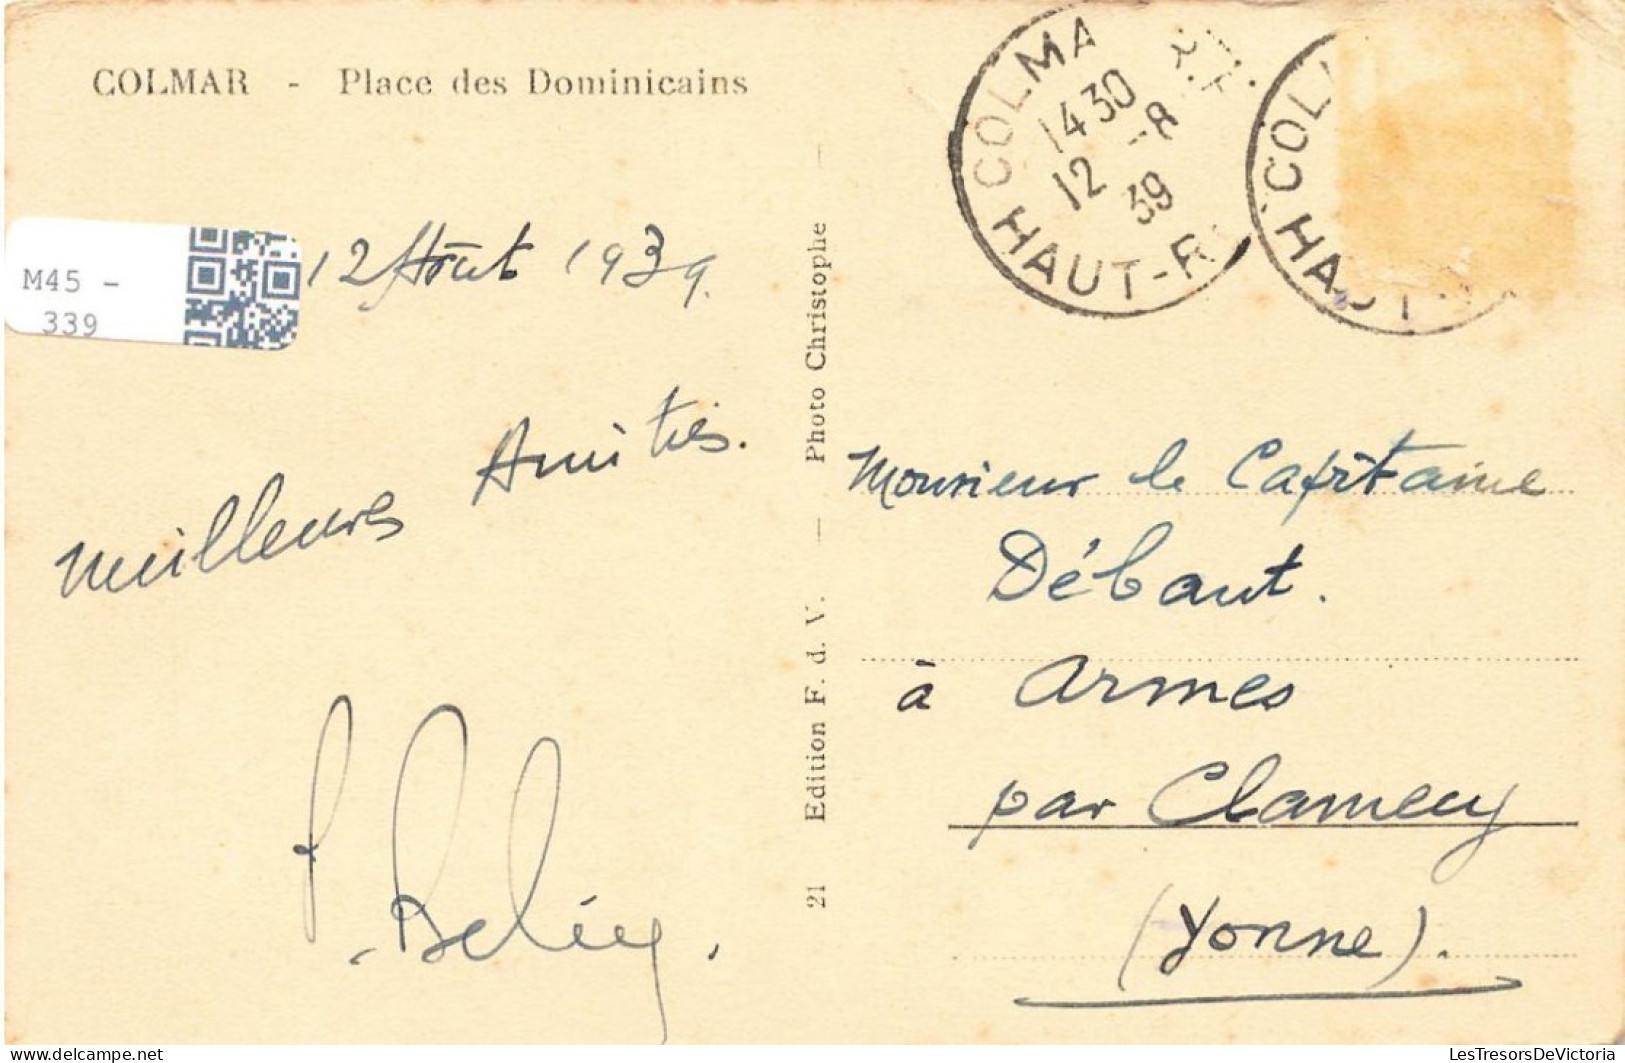 COLMAR - Place des Dominicains
COLMA
1430
12 -8
39
HAUT-R
COL
HAUT
M45 -
339
12 Août 1939.
meilleures Amitiés.
21 Edition F. d. V. — Photo Christophe —
Monsieur le Capitaine
Débaut.
à Armes
par Clamecy
(Yonne).
delcampe.net
LesTresorsDeVictoria